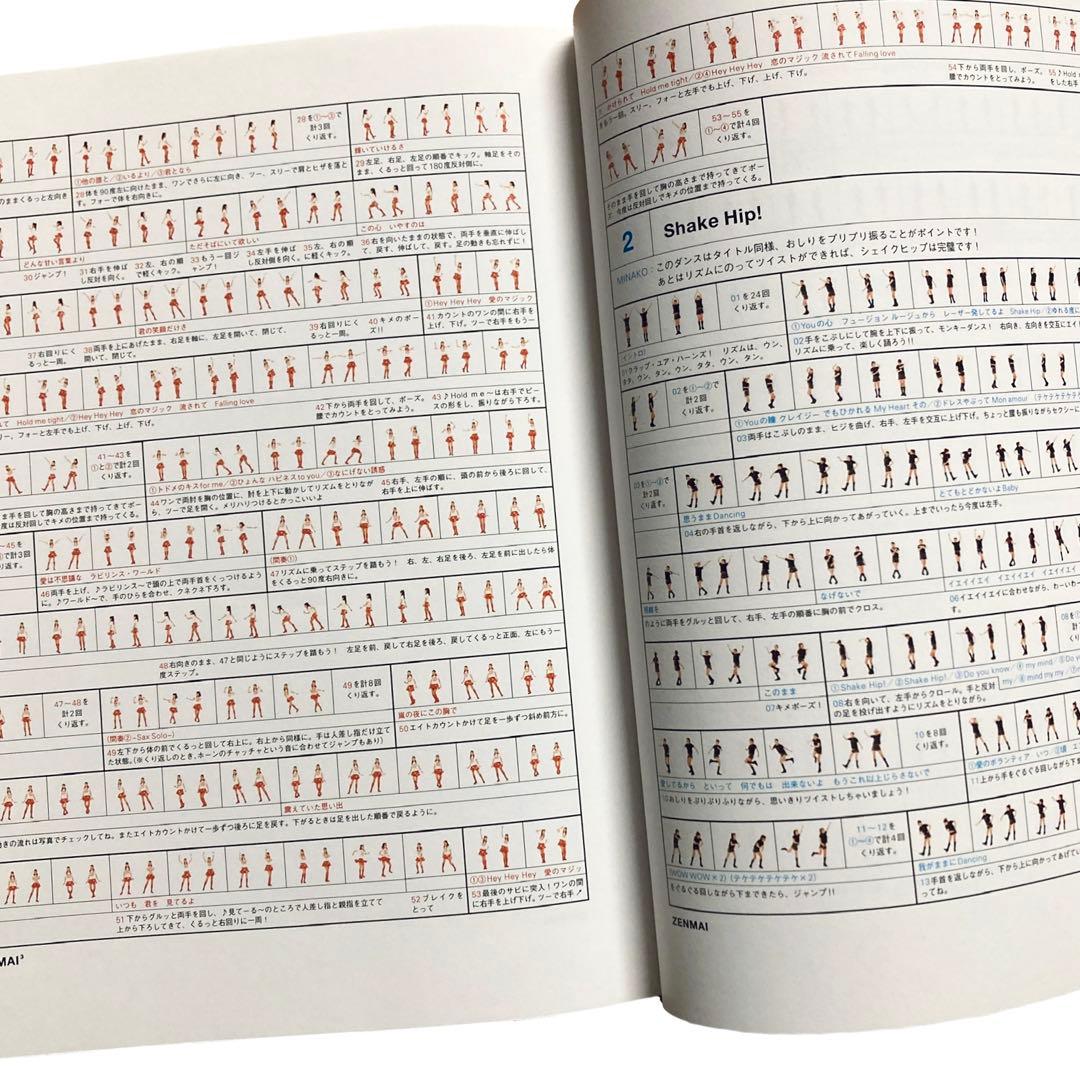 28を①〜③で
計3回
くり返す。
輝いていけるさ
①他の誰と／②いるより／③君となら
のままくるっと左向き
28体を90度左に向けたまま、ワンでさらに左に向き、ツー、スリーで肩とヒザを落と
す。フォーで体を右向きに。
29左足、右足、左足の順番でキック。軸足をその
まま、くるっと回って180度反対側に。
どんな甘い言葉より
ただそばにいて欲しい
この心 いやすのは
30ジャンプ！
31右手を伸ば
し反対を向く。
32左、右の順
で軽くキック。
33もう一回ジ
ャンプ！
34左手を伸ば
し反対側を向く。
35左、右の順
に軽くキック。
36右を向いたままの状態で、両手を垂直に伸ばし
て、戻す、伸ばして、戻す。足の動きも忘れずに！
君の笑顔だけさ
①Hey Hey Hey 愛のマジック
37右回りにく
るっと一周。
38両手を上にあげたまま、右足を軸に、左足を開いて、閉じて、
開いて、閉じて。
39右回りにく
るっと一周。
40キメのポー
ズ!!
41カウントのワンの間に右手を
上げ、下げ。ツーで右手をもう一
て Hold me tight／②Hey Hey Hey 恋のマジック 流されて Falling love
リー、フォーと左手でも上げ、下げ、上げ、下げ。
42下から両手を回して、ポーズ。
腰でカウントをとってみよう。
43♪Hold me〜は右手でピー
スの形をし、振りながら下ろす。
41〜43を
①と②で計2回
くり返す。
①トドメのキスfor me／②ひょんな ハピネスto you／③なにげない誘惑
ま手を回して胸の高さまで持ってきてポー
度は反対回しでキメの位置まで持ってくる。
44ワンで両肘を胸の位置に、肘を上下に動かしてリズムをとりなが
ら、ツーで足を開く。メリハリつけるとかっこいいよ
45右手、左手の順に、頭の前から後ろに回して、
右手を上に伸ばす。
〜45を
で計3回
くり返す。
愛は不思議な ラビリンス・ワールド
(間奏①)
46両手を上げ、♪ラビリンス〜で頭の上で両手首をくっつけるよう
に。♪ワールド〜で、手のひらを合わせ、クネクネ下ろす。
47リズムに乗ってステップを踏もう！ 右、左、右足を後ろ、左足を前に出したら体
をくるっと90度右向きに。
48右向きのまま、47と同じようにステップを踏もう！ 左足を前、戻して右足を後ろ、戻してくるっと正面、左にもう一
度ステップ。
47〜48を
計2回
くり返す。
49を計8回
くり返す。
(間奏②-Sax Solo-)
嵐の夜にこの胸で
49左下から体の前でくるっと回して右上に。右上から同様に。手は人差し指だけ立て
た状態。(※くり返しのとき、ホーンのチャッチャという音に合わせてジャンプもあり)
50エイトカウントかけて足を一歩ずつ斜め前方に。
震えていた思い出
動きの流れは写真でチェックしてね。またエイトカウントかけて一歩ずつ後ろに足を戻す。下がるときは足を出した順番で戻るように。
いつも 君を 見てるよ
①③Hey Hey Hey 愛のマジック
51下からグルッと両手を回し、♪見てーる〜のところで人差し指と親指を立てて
上から下ろしてきて、くるっと右回りに一周！
52ブレイクを
とって
53最後のサビに突入！ワンの間
に右手を上げ、下げ。ツーで右手！
MAI³
かけられて Hold me tight／②④Hey Hey Hey 恋のマジック 流されてFalling love
スリー、フォーと左手でも上げ、下げ、上げ、下げ。
54下から両手を回し、ポーズ。
腰でカウントをとってみよう。
55♪Hold m
をした右手
53〜55を
①〜④で計4回
くり返す。
そのまま手を回して胸の高さまで持ってきてポー
ズ。今度は反対回しでキメの位置まで持ってくる。
2 Shake Hip!
MINAKO：このダンスはタイトル同様、おしりをプリプリ振ることがポイントです！
あとはリズムにのってツイストができれば、シェイクヒップは完璧です！
01を24回
くり返す。
(イントロ)
01クラップ・ユア・ハーンズ！ リズムは、ウン、
タタ、ウン、タン。ウン、タタ、ウン、タン。
①Youの心 フュージョン ルージュから レーザー発してるよ Shake Hip／②ゆれる度に
02手をこぶしにして腕を上下に振って、モンキーダンス！ 右向き、左向きを交互にエイト
リズムに乗って、楽しく踊ろう!!
02を①〜②で
計2回
くり返す。
①Youの瞳 クレイジー でもひかれる My Heart その／②ドレスやぶって Mon amour (テケテケテケテケ
03両手はこぶしのまま、ヒジを曲げ、右手、左手を交互に上げ下げ。ちょっと腰も振りながらセクシーに
03を①〜②で
計2回
くり返す。
思うままDancing
とてもとどかないよBaby
04右の手首を返しながら、下から上に向かってあがっていく。上までいったら今度は左手。
なげないで
イエイイエイ イエイイエイ イエイイエイ
のように両手をグルッと回して、右手、左手の順番に胸の前でクロス。
06イエイイエイに合わせながら、わーいわー
す。
このまま
07キメポーズ！
①Shake Hip!／②Shake Hip!／③Do you know／④my mind／⑤Do yo
08右を向いて、左手からクロール。手と反対
の足を投げ出すようにリズムをとりながら。
愛してるから といって 何でもは 出来ないよ もうこれ以上じらさないで
10おしりをぷりぷりふりながら、思いきりツイストしちゃいましょう！
10を8回
くり返す。
①愛のボランティア いつ
11上から手をぐるぐる回しながら下ま
WOW WOW×2) (テケテケテケテケ×2)
をぐるぐる回しながら下まできたら、ジャンプ!!
11〜12を
①〜④で計4回
くり返す。
我がままにDancing
13手首を返しながら、下から上に向かってあげてい
ってね。
ZENMAI